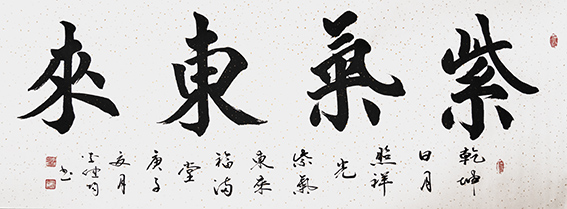 紫氣東來
乾坤
日月
照祥
光
紫氣
東來
福滿
堂
庚子
夏月
書